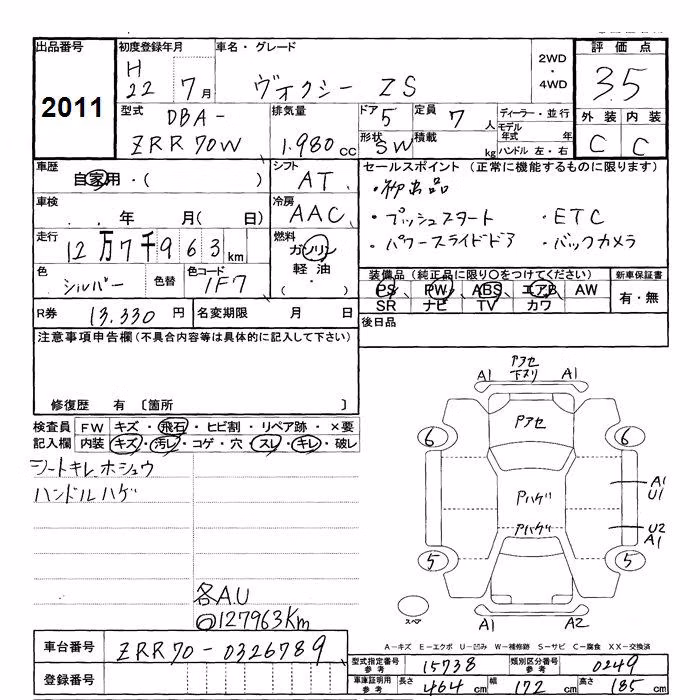 出品番号 初度登録年月 車名・グレード 評価点
2011 H22 7月 ヴォクシー ZS 2WD・4WD 3.5
型式 DBA-ZRR70W 排気量 1.980cc ドア 5 定員 7人 ディーラー・並行 外装 内装
形状 SW 積載 kg モデル年式 年 ハンドル 左・右 C C
車歴 自家用・( ) シフト AT セールスポイント (正常に機能するものに限ります)
車検 . . 年 月( 日) 冷房 AAC
・プッシュスタート ・ETC
走行 12万7千963km 燃料 ガソリン・軽油・( ) ・パワースライドドア ・バックカメラ
色 シルバー 色替 色コード 1F7 装備品 (純正品に限り○をつけてください) 新車保証書
PS PW ABS エアB AW 有・無
SR ナビ TV カワ
R券 13.330円 名変期限 月 日 後日品
注意事項申告欄 (不具合内容等は具体的に記入して下さい)
修復歴 有 〔箇所 〕
検査員 FW キズ・飛石・ヒビ割・リペア跡・×要
記入欄 内装 キズ・汚レ・コゲ・穴・スレ・キレ・破レ
シートキレ.ホシュウ
ハンドルハゲ
各A.U
◎127963Km
Pアセ
下スリ
A1 A1
Pアセ
6 6
Pハゲ A1
U1
Pハゲ U2
A1
5 5
スペア A1 A2
A-キズ E-エクボ U-凹み W-補修跡 S-サビ C-腐食 XX-交換済
車台番号 ZRR70-0326789
型式指定番号 参考 15738 類別区分番号 参考 0249
登録番号 車庫証明用 参考 長さ 464cm 幅 172cm 高さ 185cm